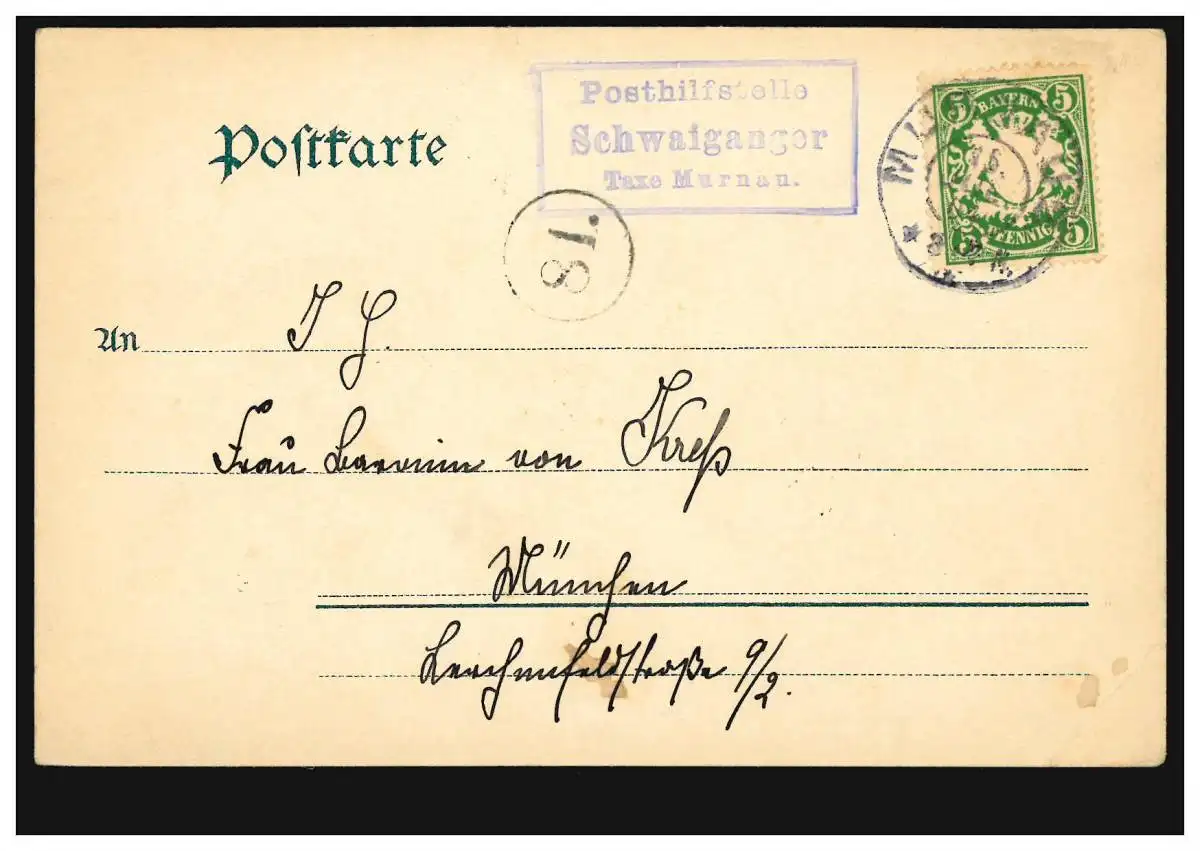 Postkarte
Posthilfstelle
Schwaiganger
Taxe Murnau.
5 BAYERN 5
5 PFENNIG 5
81.
An I H.
Frau Baronin von Kreß
München
Lerchenfeldstraße 9/2.